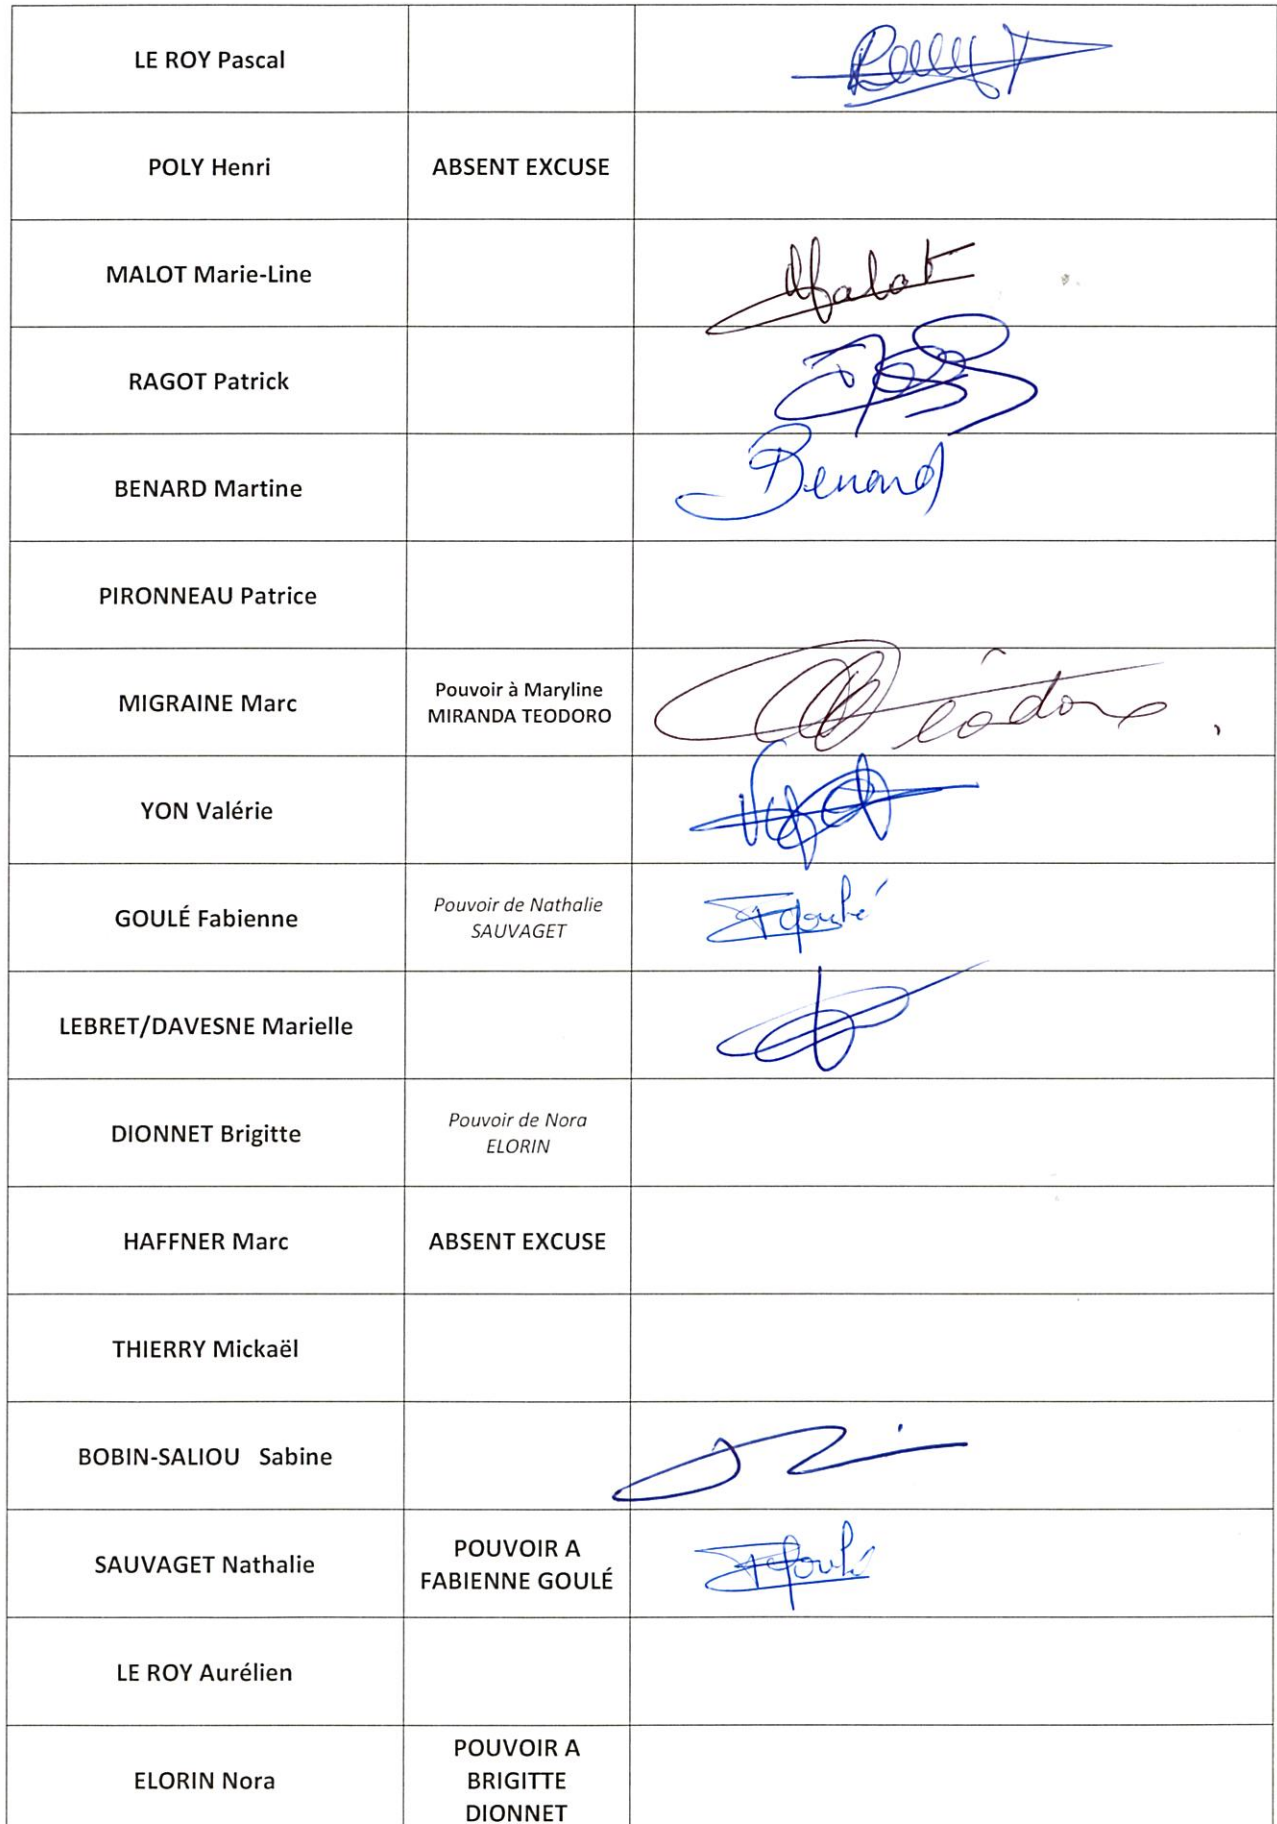 LE ROY Pascal
POLY Henri ABSENT EXCUSE
MALOT Marie-Line
Malot
RAGOT Patrick
BENARD Martine
Benard
PIRONNEAU Patrice
MIGRAINE Marc
Pouvoir à Maryline
MIRANDA TEODORO
YON Valérie
GOULÉ Fabienne
Pouvoir de Nathalie
SAUVAGET
FGoulé
LEBRET/DAVESNE Marielle
DIONNET Brigitte
Pouvoir de Nora
ELORIN
HAFFNER Marc ABSENT EXCUSE
THIERRY Mickaël
BOBIN-SALIOU Sabine
SAUVAGET Nathalie
POUVOIR A
FABIENNE GOULÉ
FGoulé
LE ROY Aurélien
ELORIN Nora
POUVOIR A
BRIGITTE
DIONNET